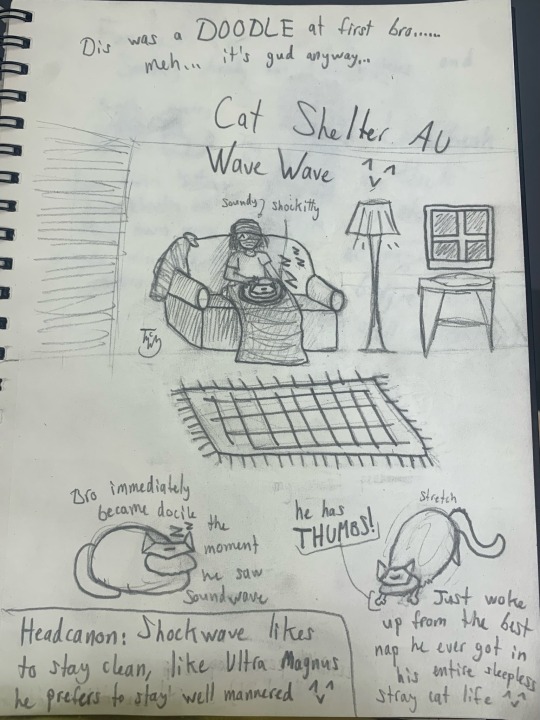 Dis was a DOODLE at first bro......
meh... it's gud anyway...
Cat Shelter AU
Wave Wave ^v^
soundy? shockitty
N N N N
Bro immediately
became docile
z z
the
moment
he saw
Soundwave
he has
THUMBS!
stretch
Just woke
up from the best
nap he ever got in
his entire sleepless
stray cat life ^v^
Headcanon: Shockwave likes
to stay clean, like Ultra Magnus
he prefers to stay well mannered ^v^